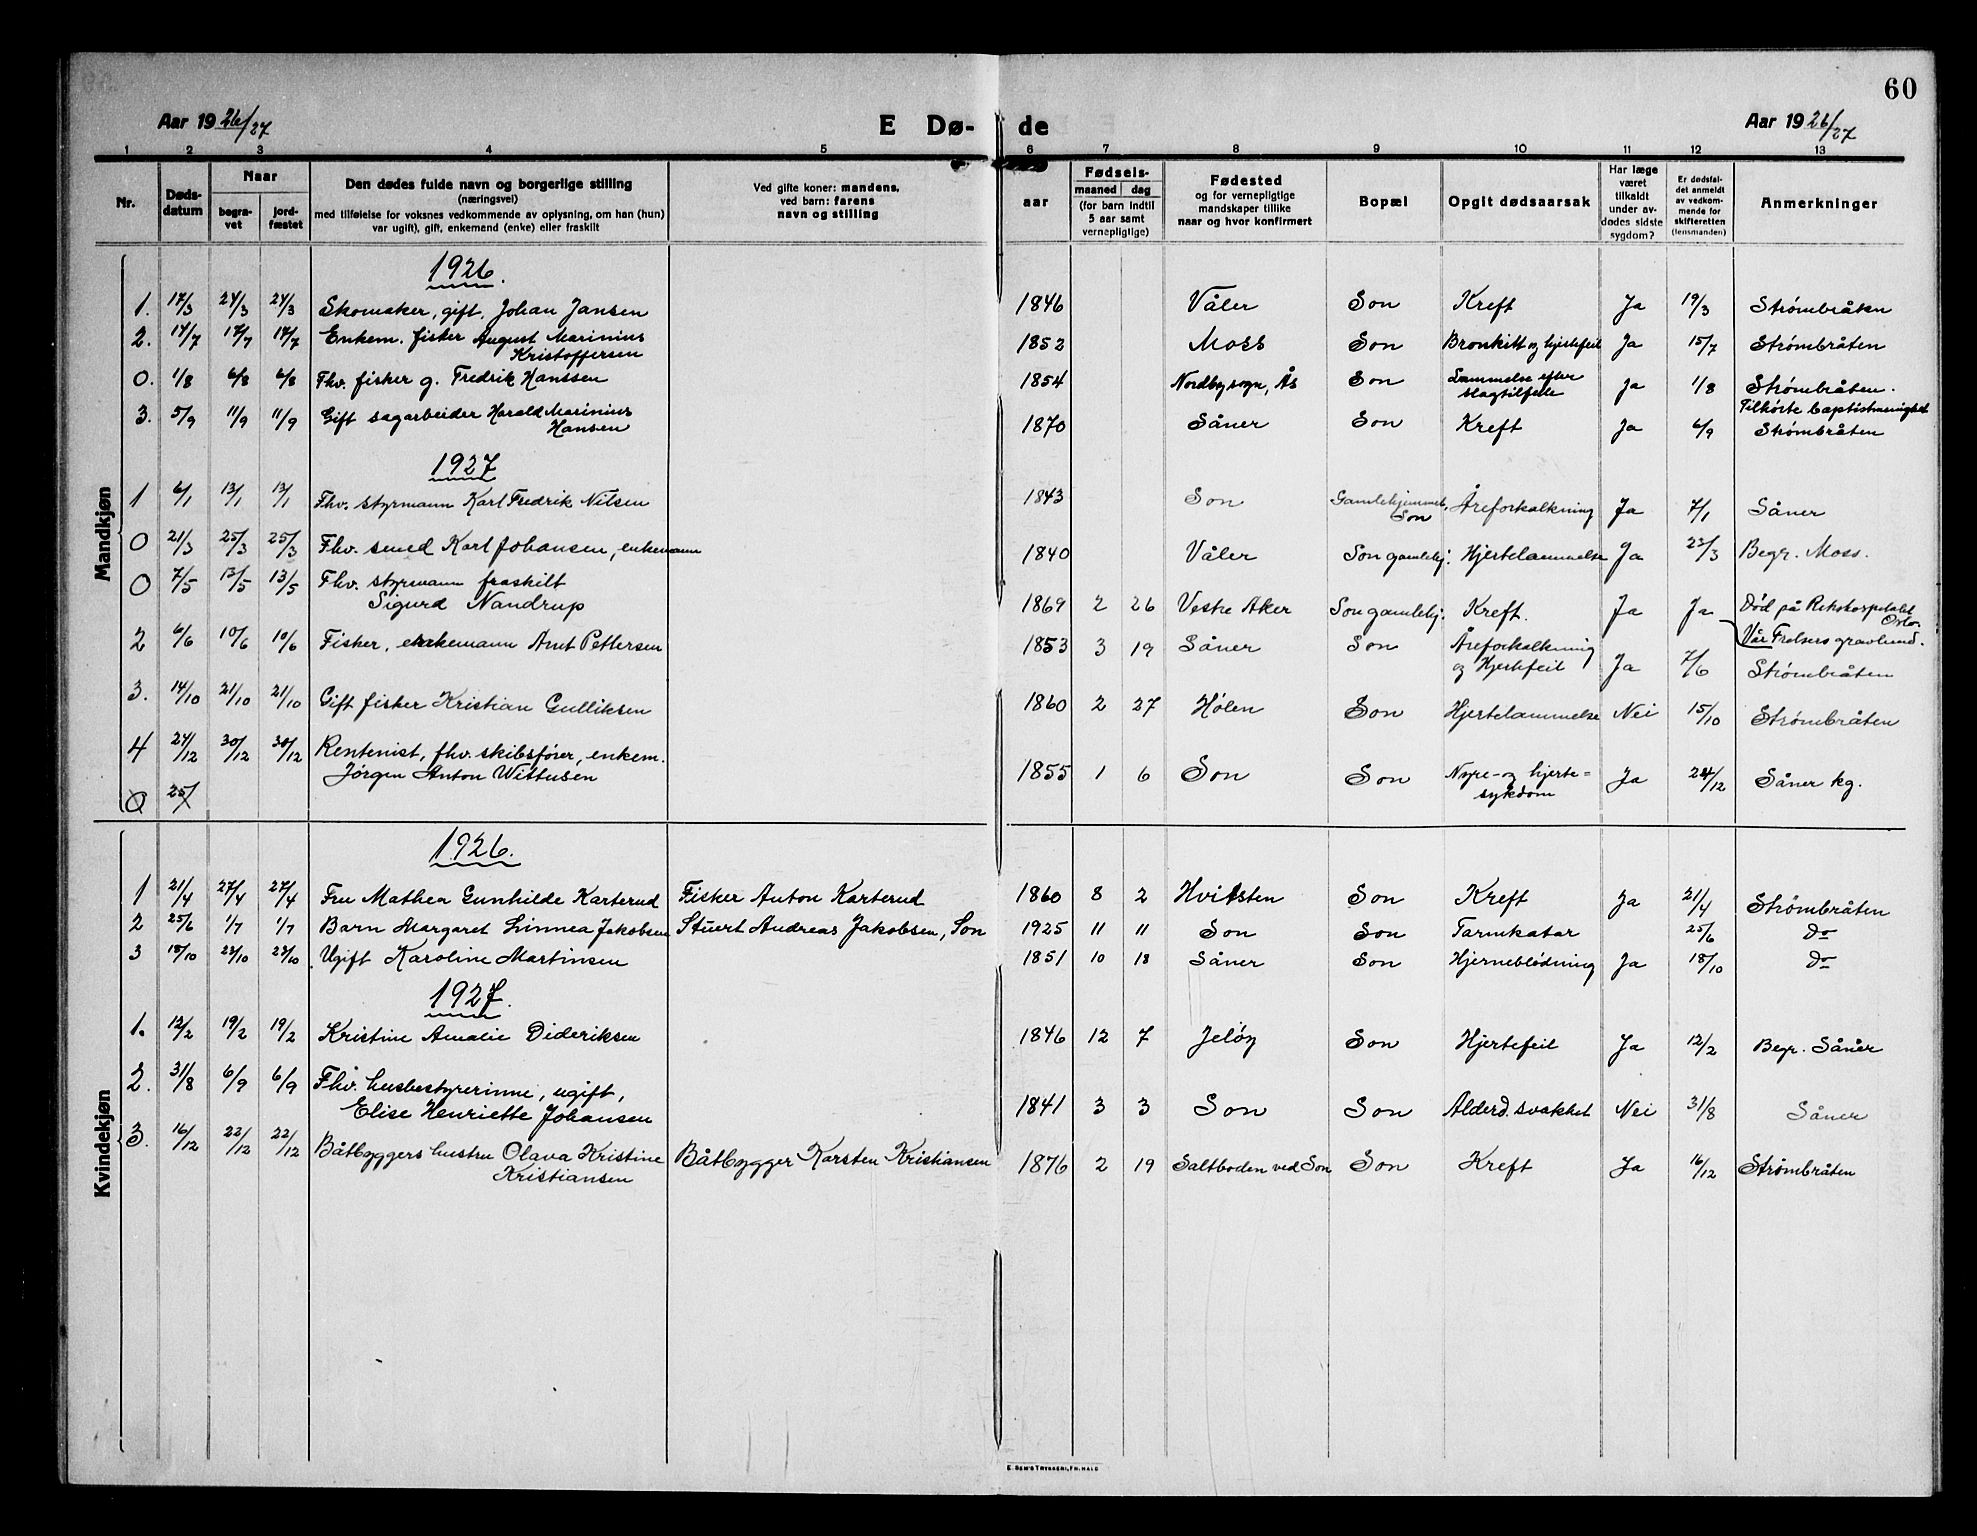 60
Aar 1926/27 E Dø- de Aar 1926/27
1 2 3 4 5 6 7 8 9 10 11 12 13
Nr. | Døds-datum | Naar begra-vet | jord-fæstet | Den dødes fulde navn og borgerlige stilling (næringsvei) med tilføielse for voksnes vedkommende av oplysning, om han (hun) var ugift), gift, enkemand (enke) eller fraskilt | Ved gifte koner: mandens, ved barn: farens navn og stilling | aar | Fødsels- maaned | dag (for barn indtil 5 aar samt vernepligtige) | Fødested og for vernepligtige mandskaper tillike naar og hvor konfirmert | Bopæl | Opgit dødsaarsak | Har læge været tilkaldt under av-dødes sidste sygdom? | Er dødsfal-det anmeldt av vedkom-mende for skifteretten (lensmanden) | Anmerkninger
Mandkjøn
1926.
1. 17/3 24/3 24/3 Skomaker, gift, Johan Jansen 1846 Våler Son Kreft Ja 19/3 Strømbråten
2. 14/7 17/7 17/7 Enkem. fisker August Marinius Kristoffersen 1852 Moss Son Bronkitt og hjertefeil Ja 15/7 Strømbråten
0. 1/8 6/8 6/8 Fhv. fisker g. Fredrik Hanssen 1854 Nordby sogn, Ås Son Lammelse efter slagtilfelle Ja 1/8 Strømbråten. Tilhørte baptistmenighet
3. 5/9 11/9 11/9 Gift sagarbeider Harald Marinius Hansen 1870 Såner Son Kreft Ja 6/9 Strømbråten
1927
1 6/1 13/1 13/1 Fhv. styrmann Karl Fredrik Nilsen 1843 Son Gamlehjemmet, Son Åreforkalkning Ja 7/1 Såner
0 21/3 25/3 25/3 Fhv. smed Karl Johansen, enkemann 1840 Våler Son gamlehj. Hjertelammelse Ja 22/3 Begr. Moss.
0 7/5 13/5 13/5 Fhv. styrmann fraskilt Sigurd Nandrup 1869 2 26 Vestre Aker Son gamlehj. Kreft. Ja Ja Død på Rikshospitalet Oslo. Vår Frelsers gravlund.
2 6/6 10/6 10/6 Fisker, enkemann Arnt Pettersen 1853 3 19 Såner Son Åreforkalkning og Hjertefeil Ja 7/6 Strømbråten
3. 14/10 21/10 21/10 Gift fisker Kristian Gulliksen 1860 2 27 Hølen Son Hjertelammelse Nei 15/10 Strømbråten
4 24/12 30/12 30/12 Rentenist, fhv. skibsfører, enkem. Jørgen Anton Wittusen 1855 1 6 Son Son Nyre- og hjerte=sykdom Ja 24/12 Såner kg.
0 25/
Kvindekjøn
1926.
1 21/4 27/4 27/4 Fru Mathea Gunhilde Karterud Fisker Anton Karterud 1860 8 2 Hvitsten Son Kreft Ja 21/4 Strømbråten
2 25/6 1/7 1/7 Barn Margaret Linnea Jakobsen Stuert Andreas Jakobsen, Son 1925 11 11 Son Son Tarmkatar 25/6 do
3 18/10 23/10 23/10 Ugift Karoline Martinsen 1851 10 18 Såner Son Hjerneblødning Ja 18/10 do
1927.
1. 12/2 19/2 19/2 Kristine Amalie Dideriksen 1846 12 7 Jeløy Son Hjertefeil Ja 12/2 Begr. Såner
2. 31/8 6/9 6/9 Fhv. husbestyrerinne, ugift, Elise Henriette Johansen 1841 3 3 Son Son Alderd.svakhet Nei 31/8 Såner
3. 16/12 22/12 22/12 Båtbyggers hustru Olava Kristine Kristiansen Båtbygger Karsten Kristiansen 1876 2 19 Saltboden ved Son Son Kreft Ja 16/12 Strømbråten
E. SEM'S TRYKKERI, FR.HALD